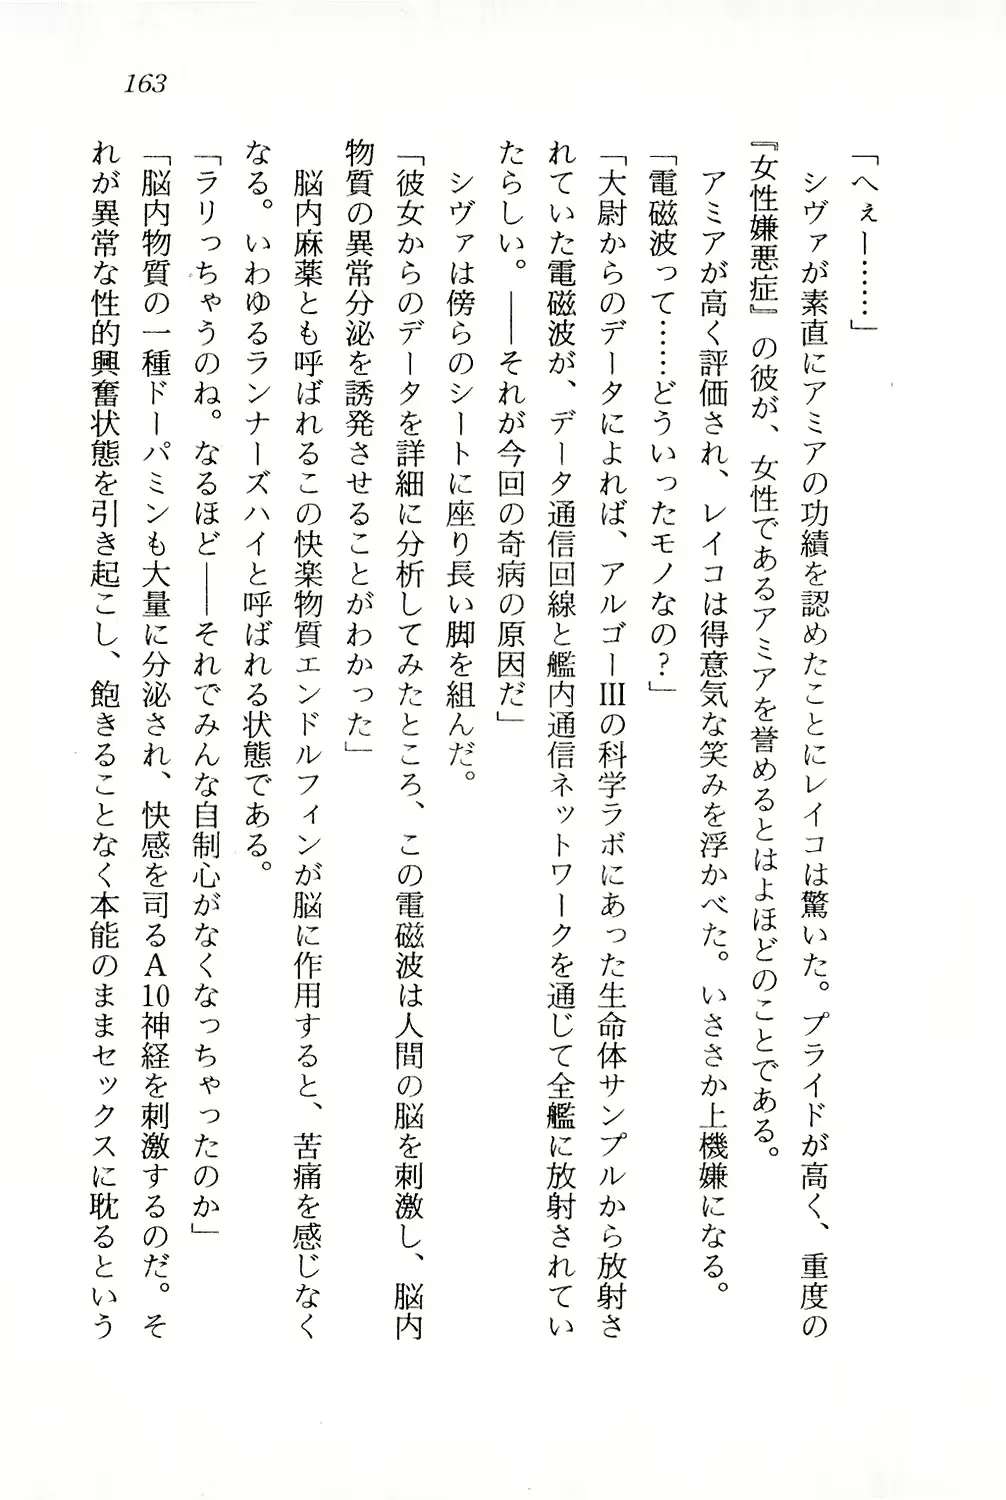 163
「へぇー……」
　シヴァが素直にアミアの功績を認めたことにレイコは驚いた。プライドが高く、重度の
『女性嫌悪症』の彼が、女性であるアミアを誉めるとはよほどのことである。
　アミアが高く評価され、レイコは得意気な笑みを浮かべた。いささか上機嫌になる。
「電磁波って……どういったモノなの？」
「大尉からのデータによれば、アルゴーⅢの科学ラボにあった生命体サンプルから放射さ
れていた電磁波が、データ通信回線と艦内通信ネットワークを通じて全艦に放射されてい
たらしい。――それが今回の奇病の原因だ」
　シヴァは傍らのシートに座り長い脚を組んだ。
「彼女からのデータを詳細に分析してみたところ、この電磁波は人間の脳を刺激し、脳内
物質の異常分泌を誘発させることがわかった」
　脳内麻薬とも呼ばれるこの快楽物質エンドルフィンが脳に作用すると、苦痛を感じなく
なる。いわゆるランナーズハイと呼ばれる状態である。
「ラリっちゃうのね。なるほど――それでみんな自制心がなくなっちゃったのか」
「脳内物質の一種ドーパミンも大量に分泌され、快感を司るA10神経を刺激するのだ。そ
れが異常な性的興奮状態を引き起こし、飽きることなく本能のままセックスに耽るという